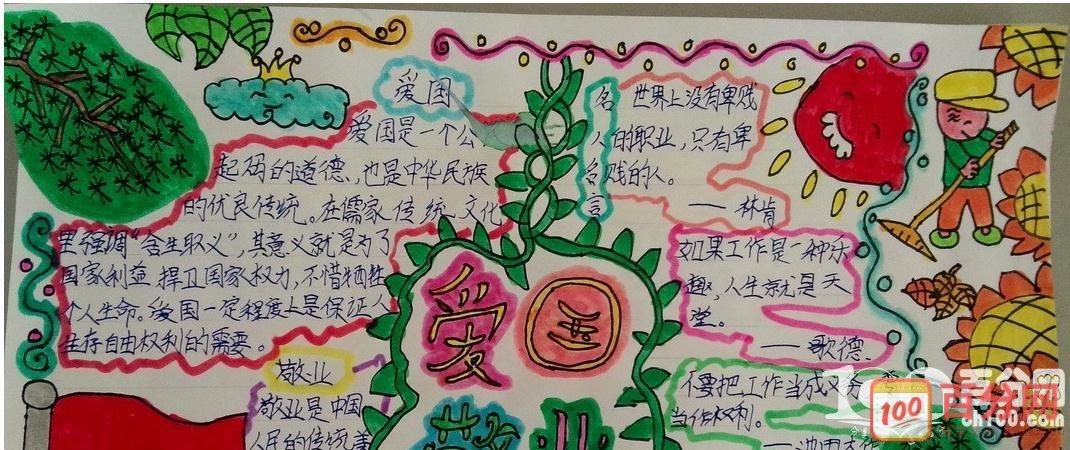 爱国
爱国是一个公
起码的道德,也是中华民族
的优良传统。在儒家传统文化
里强调“舍生取义”,其意义就是为了
国家利益 捍卫国家权力,不惜牺牲
个人生命。爱国一定程度上是保证人
生存自由权利的需要。
敬业
敬业是中国
人民的传统美
爱国
敬业
名人名言
世界上没有卑贱
的职业,只有卑
贱的人。
——林肯
如果工作是一种乐
趣,人生就是天
堂。
——歌德
不要把工作当成义务
当作权利。
——池田大作
100
百分网
cn100.com